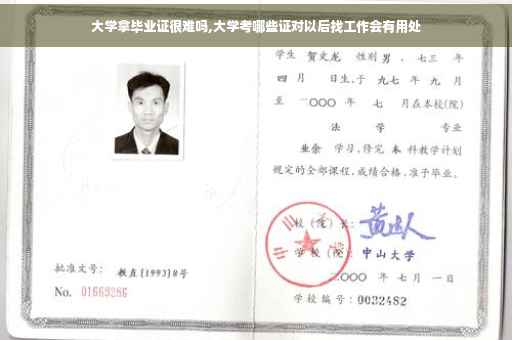 大学拿毕业证很难吗,大学考哪些证对以后找工作会有用处
学生 贺文龙 性别 男 、七三 年
四 月 日生,于 九七 年 九 月
至 二〇〇〇 年 七 月在本校(院)
法 学 专业
业余 学习,修完 本 科教学计划
规定的全部课程,成绩合格,准予毕业。
校(院)长:
学校(院) 中山大学
二〇〇〇 年 七 月 一 日
学校编号:0032482
批准文号: 教直[1993]8号
No. 01669286